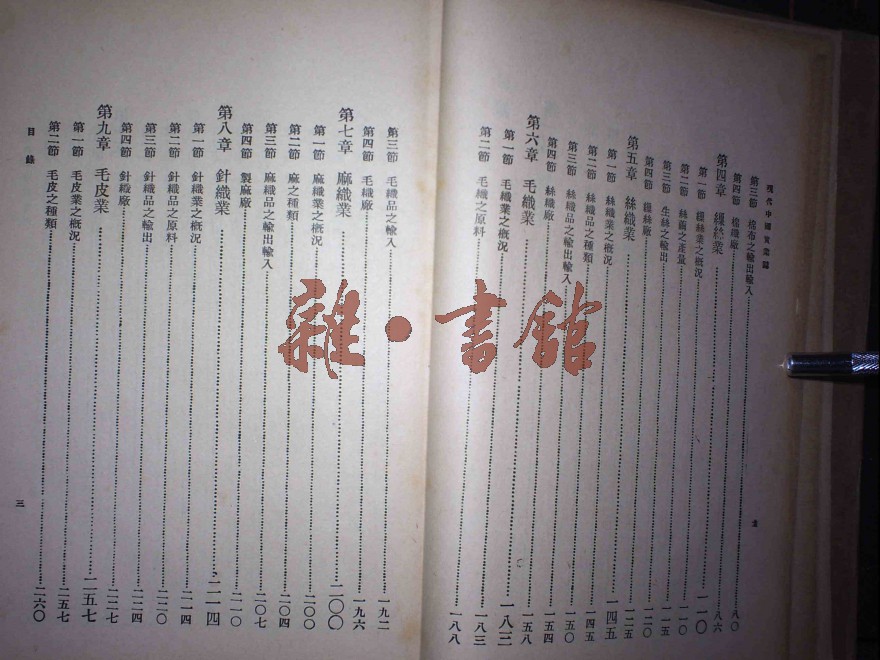 現代中國實業誌
第三節 棉布之輸出輸入……八〇
第四節 棉織廠……八六
第四章 繅絲業……一一〇
第一節 繅絲業之概況……一一〇
第二節 絲繭之產量……一一五
第三節 生絲之輸出……一二〇
第四節 繅絲廠……一二五
第五章 絲織業……一四五
第一節 絲織業之概況……一四五
第二節 絲織品之種類……一五〇
第三節 絲織品之輸出輸入……一五四
第四節 絲織廠……一五八
第六章 毛織業……一八三
第一節 毛織業之概況……一八三
第二節 毛織之原料……一八八
第三節 毛織品之輸入……一九二
第四節 毛織廠……一九六
第七章 麻織業……二〇〇
第一節 麻織業之概況……二〇〇
第二節 麻之種類……二〇四
第三節 麻織品之輸出輸入……二〇七
第四節 製麻廠……二一〇
第八章 針織業……二一四
第一節 針織業之概況……二一四
第二節 針織品之原料……二二〇
第三節 針織品之輸出……二二四
第四節 針織廠……二二七
第九章 毛皮業……二五七
第一節 毛皮業之概況……二五七
第二節 毛皮之種類……二六〇
目錄
三
雜·書館